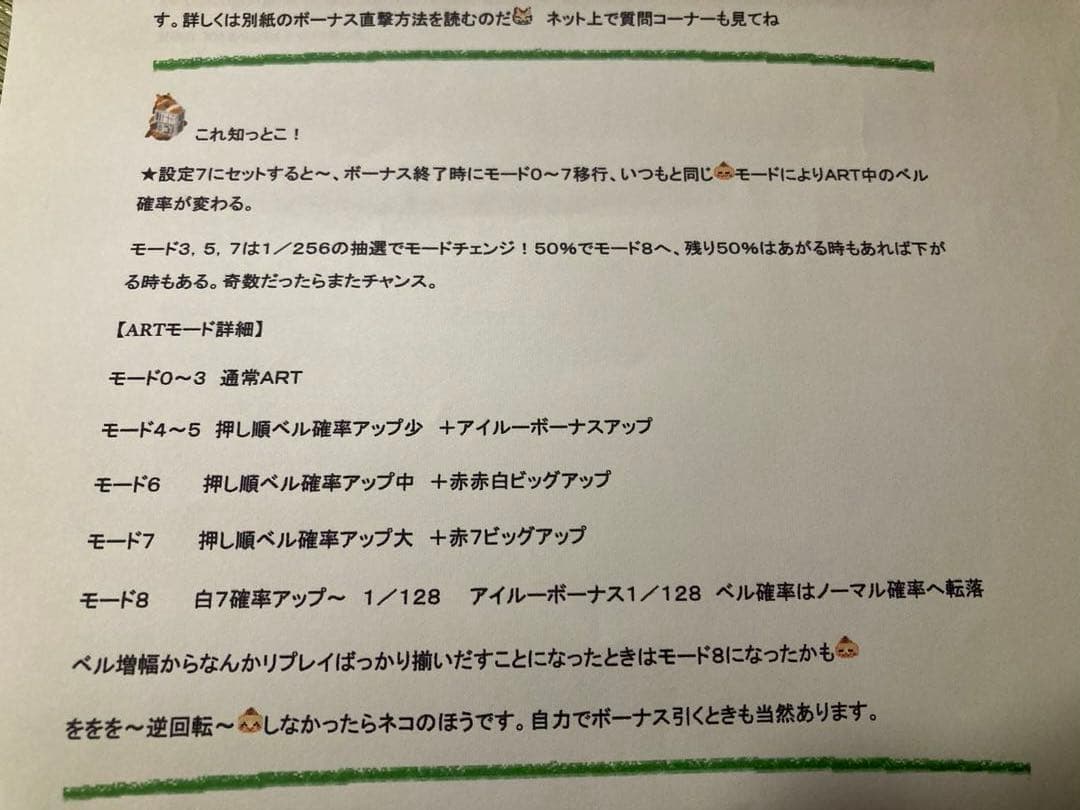 す。詳しくは別紙のボーナス直撃方法を読むのだ ネット上で質問コーナーも見てね
これ知っとこ！
★設定7にセットすると～、ボーナス終了時にモード0～7移行、いつもと同じモードによりART中のベル
確率が変わる。
モード3，5，7は1／256の抽選でモードチェンジ！50％でモード8へ、残り50％はあがる時もあれば下が
る時もある。奇数だったらまたチャンス。
【ARTモード詳細】
モード0～3 通常ART
モード4～5 押し順ベル確率アップ少 ＋アイルーボーナスアップ
モード6 押し順ベル確率アップ中 ＋赤赤白ビッグアップ
モード7 押し順ベル確率アップ大 ＋赤7ビッグアップ
モード8 白7確率アップ～ 1／128 アイルーボーナス1／128 ベル確率はノーマル確率へ転落
ベル増幅からなんかリプレイばっかり揃いだすことになったときはモード8になったかも
ををを～逆回転～しなかったらネコのほうです。自力でボーナス引くときも当然あります。